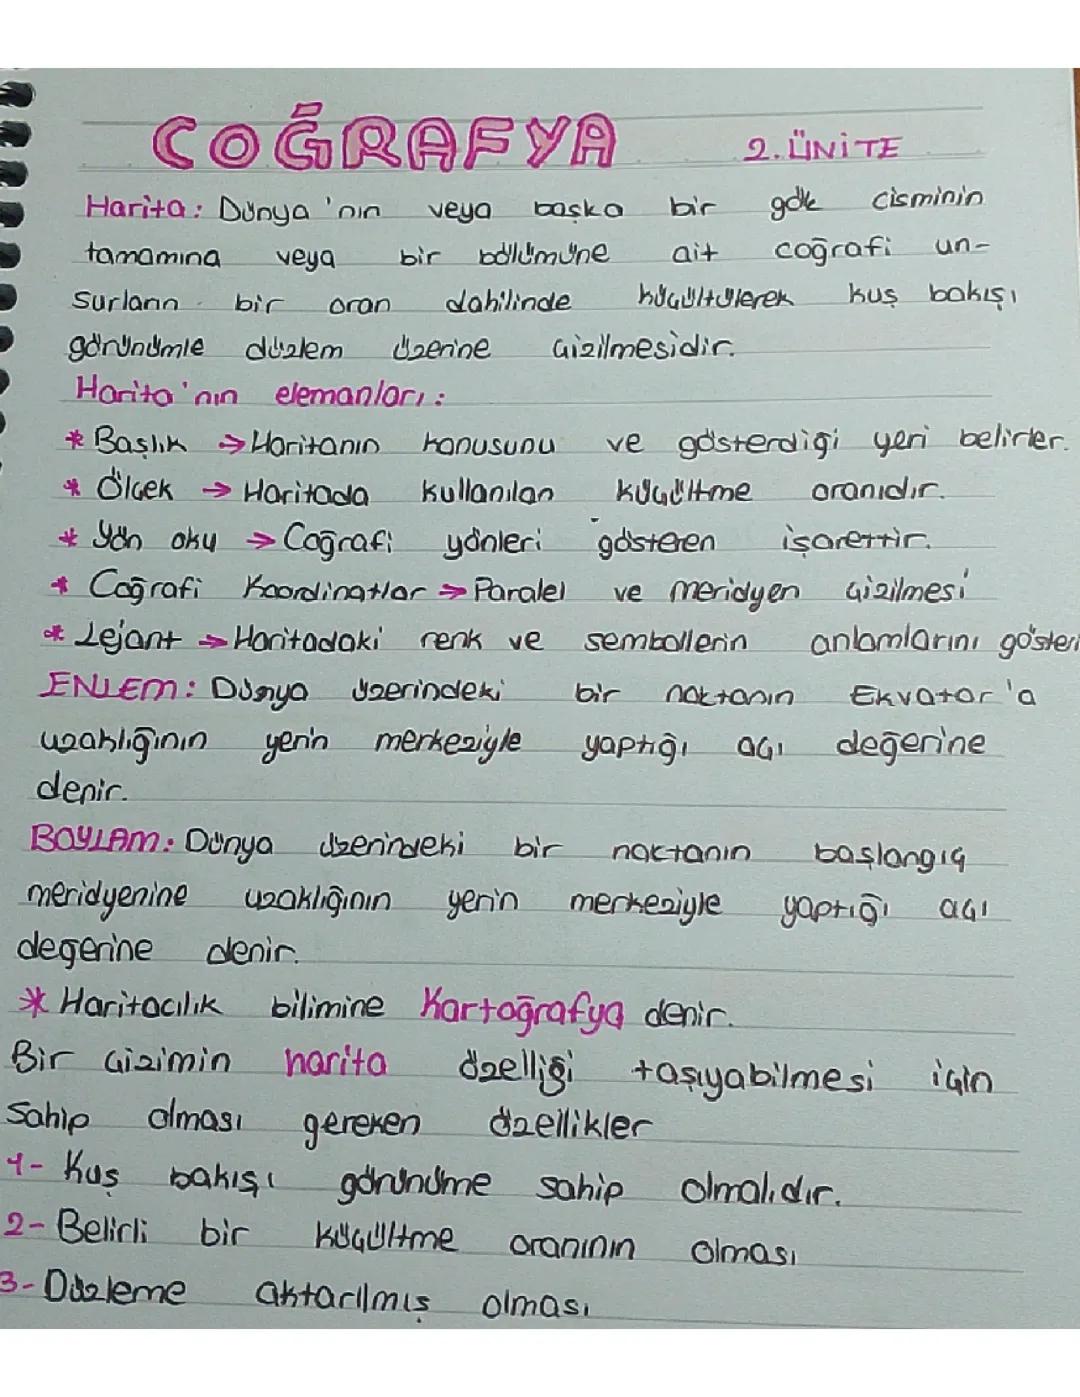 COĞRAFYA 2. ÜNİTE
Harita: Dünya'nın veya başka bir gök cisminin
tamamına veya bir bölümüne ait coğrafi un-
surların bir oran dahilinde küçültülerek kuş bakışı
görünümle düzlem üzerine çizilmesidir.
Harita'nın elemanları:
* Başlık → Haritanın konusunu ve gösterdiği yeri belirler.
* Ölçek → Haritada kullanılan küçültme oranıdır.
* Yön oku → Coğrafi yönleri gösteren işarettir.
* Coğrafi Koordinatlar → Paralel ve meridyen çizilmesi
* Lejant → Haritadaki renk ve sembollerin anlamlarını gösteri
ENLEM: Dünya üzerindeki bir noktanın Ekvator'a
uzaklığının yerin merkeziyle yaptığı açı değerine
denir.
BOYLAM: Dünya üzerindeki bir noktanın başlangıç
meridyenine uzaklığının yerin merkeziyle yaptığı açı
degerine denir.
* Haritacılık bilimine Kartoğrafya denir.
Bir çizimin harita özelliği taşıyabilmesi için
sahip olması gereken özellikler
1- Kuş bakışı görünüme sahip olmalıdır.
2- Belirli bir küçültme oranının olması
3- Düzleme aktarılmış olması